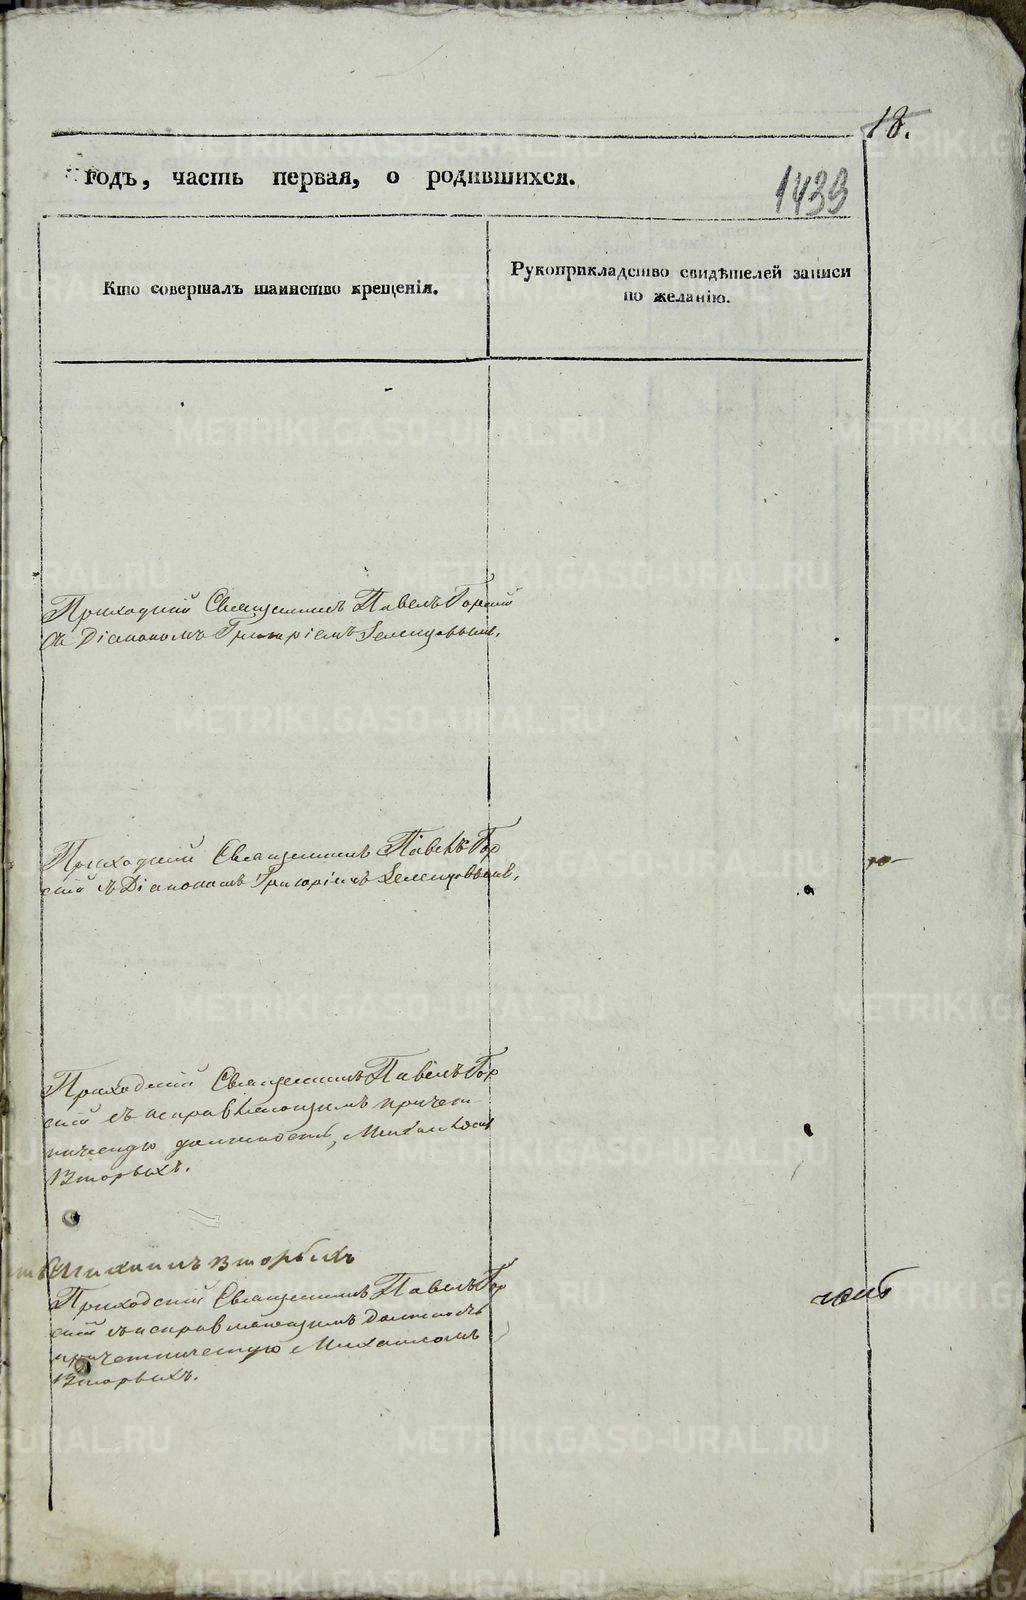 18.
годъ, часть первая, о родившихся.
1439
Кто совершалъ таинство крещенія.
Рукоприкладство свидѣтелей записи
по желанію.
Приходскій Священникъ Павелъ Горскій
съ Діакономъ Григоріемъ
Приходскій Священникъ Павелъ Гор
скій съ Діакономъ Григоріемъ
Приходскій Священникъ Павелъ Гор
скій съ исправляющимъ причет
ническую должность, Михаиломъ
Вторыхъ.
Михаилъ Вторыхъ
Приходскій Священникъ Павелъ Гор
скій съ исправляющимъ должность
причетническую Михаиломъ
Вторыхъ.
METRIKI.GASO-URAL.RU